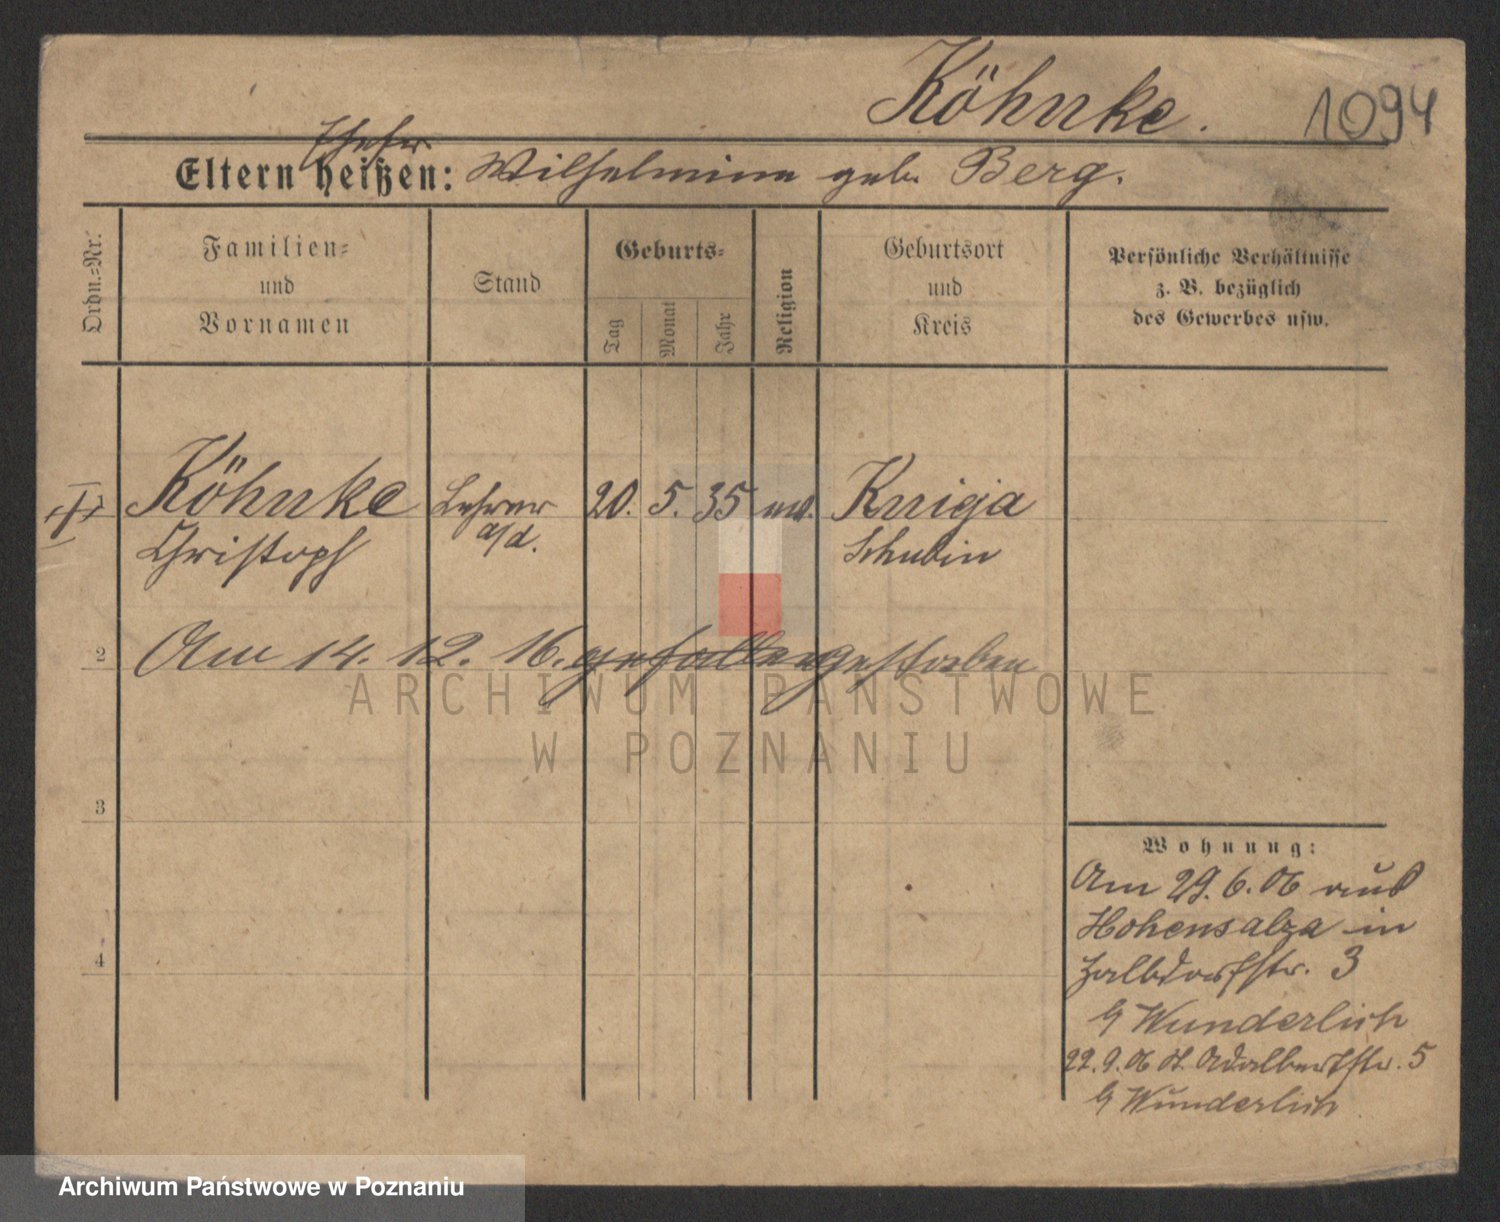 Köhnke.
1094
Ehefr
Eltern heißen: Wilhelmine geb. Berg.
Ordn.-Nr.
Familien-
und
Vornamen
Stand
Geburts-
Tag
Monat
Jahr
Religion
Geburtsort
und
Kreis
Persönliche Verhältnisse
z. B. bezüglich
des Gewerbes usw.
1 Köhnke Lehrer 20. 5. 35 ev. Knieja
Christoph a/d. Schubin
2 Am 14. 12. 16. gefallen gestorben
ARCHIWUM PAŃSTWOWE
W POZNANIU
3
4
Wohnung:
Am 29.6.06 aus
Hohensalza in
str. 3
Wunderlich
22.9.06 Adalbertstr. 5
Wunderlich
Archiwum Państwowe w Poznaniu